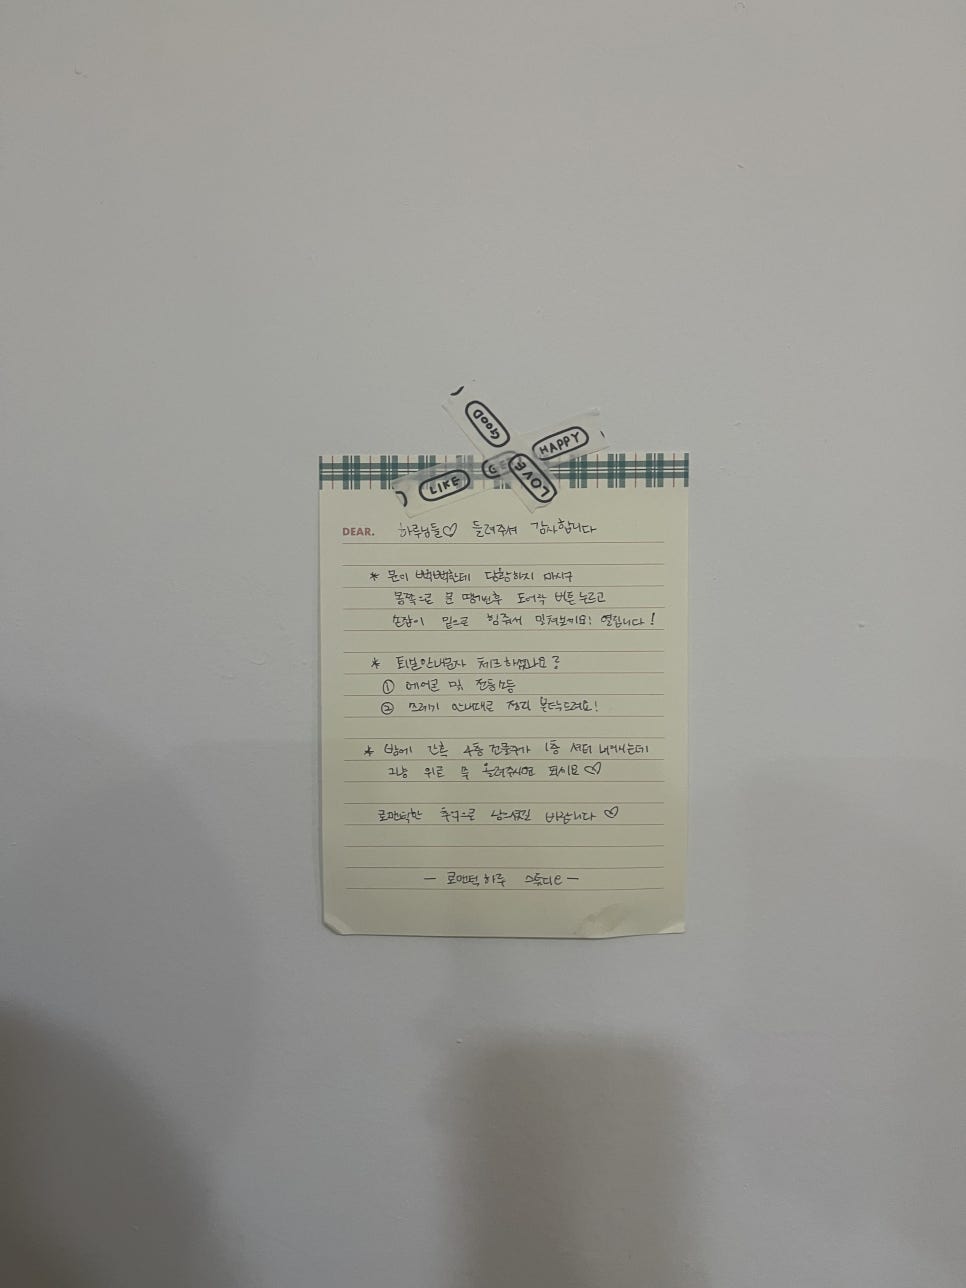 GOOD
HAPPY
LIKE
LOVE
DEAR. 하루님들♡ 들려주셔 감사합니다
* 문이 빡빡한데 당황하지 마시구
몸쪽으로 문 땡기신후 도어락 버튼 누르고
손잡이 밑으로 힘줘서 밀쳐보세요! 열립니다!
* 퇴실안내문자 체크하셨나요?
① 에어콘 및 전등소등
② 쓰레기 안내대로 정리 부탁드려요!
* 밤에 간혹 4층 건물주가 1층 셔터 내리시는데
그냥 위로 쭉 올려주시면 되시요♡
로맨틱한 추억으로 남으셨길 바랍니다♡
- 로맨틱하루 스튜디오 -